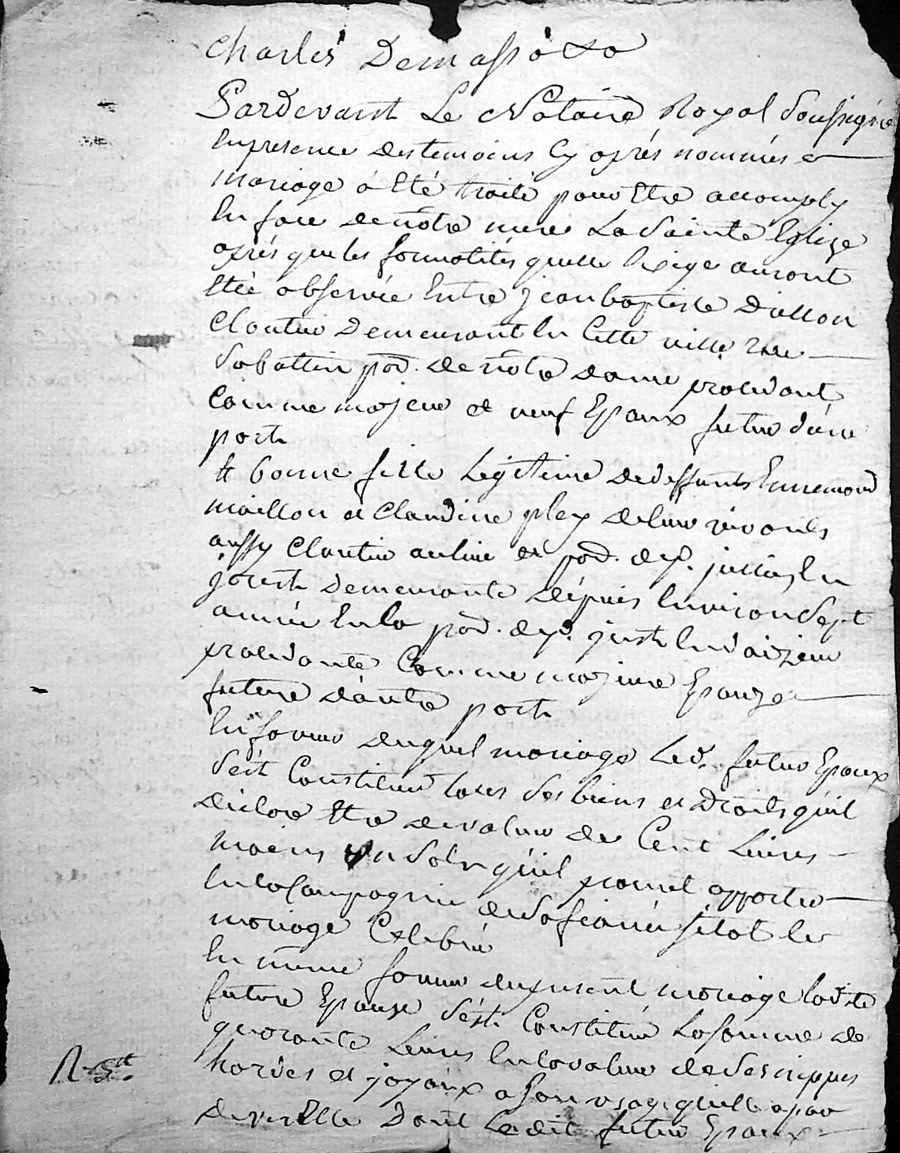 Charles Demasso &a
Pardevant Le Notaire Royal Soussigné
En presence des temoins Cy aprés nommés &
mariage á Eté traité pour Etre accomply
En face de nôtre mere La Sainte Eglize
aprés que les formalités quelle Exige auront
Eté observée Entre Jean baptiste
Cloutier Demeurant En Cette ville rue
pd. de nôtre dame procedant
Comme majeur et veuf Epoux futur dúne
part
Et bonne fille Legitime dedeffunts Ennemond
maillon et Claudine pley deleur vivants
aussy Cloutier au lieu et pd. de st. jullien En
jarest Demeurante Dépuis Environ Sept
année En la pd. de st. just En vaizeur
procedante Comme majeure Epouze
future dáutre part
En faveur duquel mariage Led. futur Epoux
Sést Constitué tous Ses biens et droits quíl
declare Etre de valeur de Cent Livres
moins un Sol quíl promet apporter
En la Compagnie de Sa fiancée sitot le
mariage Celebré
En meme faveur du present mariage ladite
future Epouze Sést Constitué La Somme de
quarante Livres En la valeur de Ses nippes
hardes et joyaux a Son usage quelle a par
devers Elle Dont Ledit futur Epoux